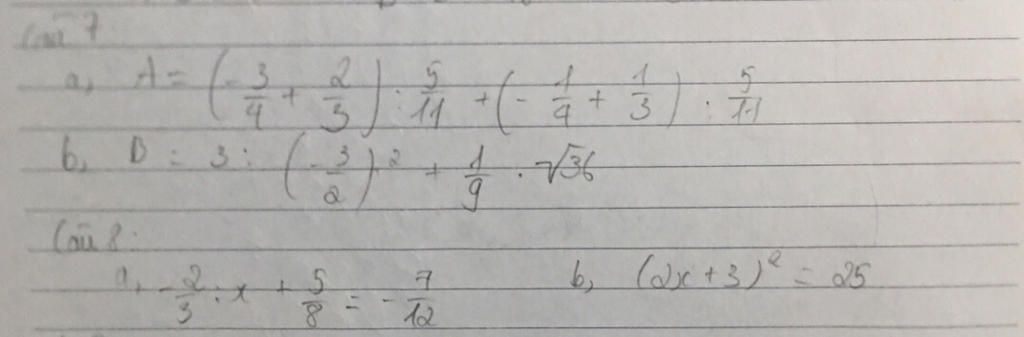 Câu 7
a, A = (-3/4 + 2/3) : 5/11 + (-1/4 + 1/3) : 5/11
b, B = 3 : (-3/2)² + 1/9 . √36
Câu 8:
a, -2/3 : x + 5/8 = -7/12 b, (2x+3)² = 25